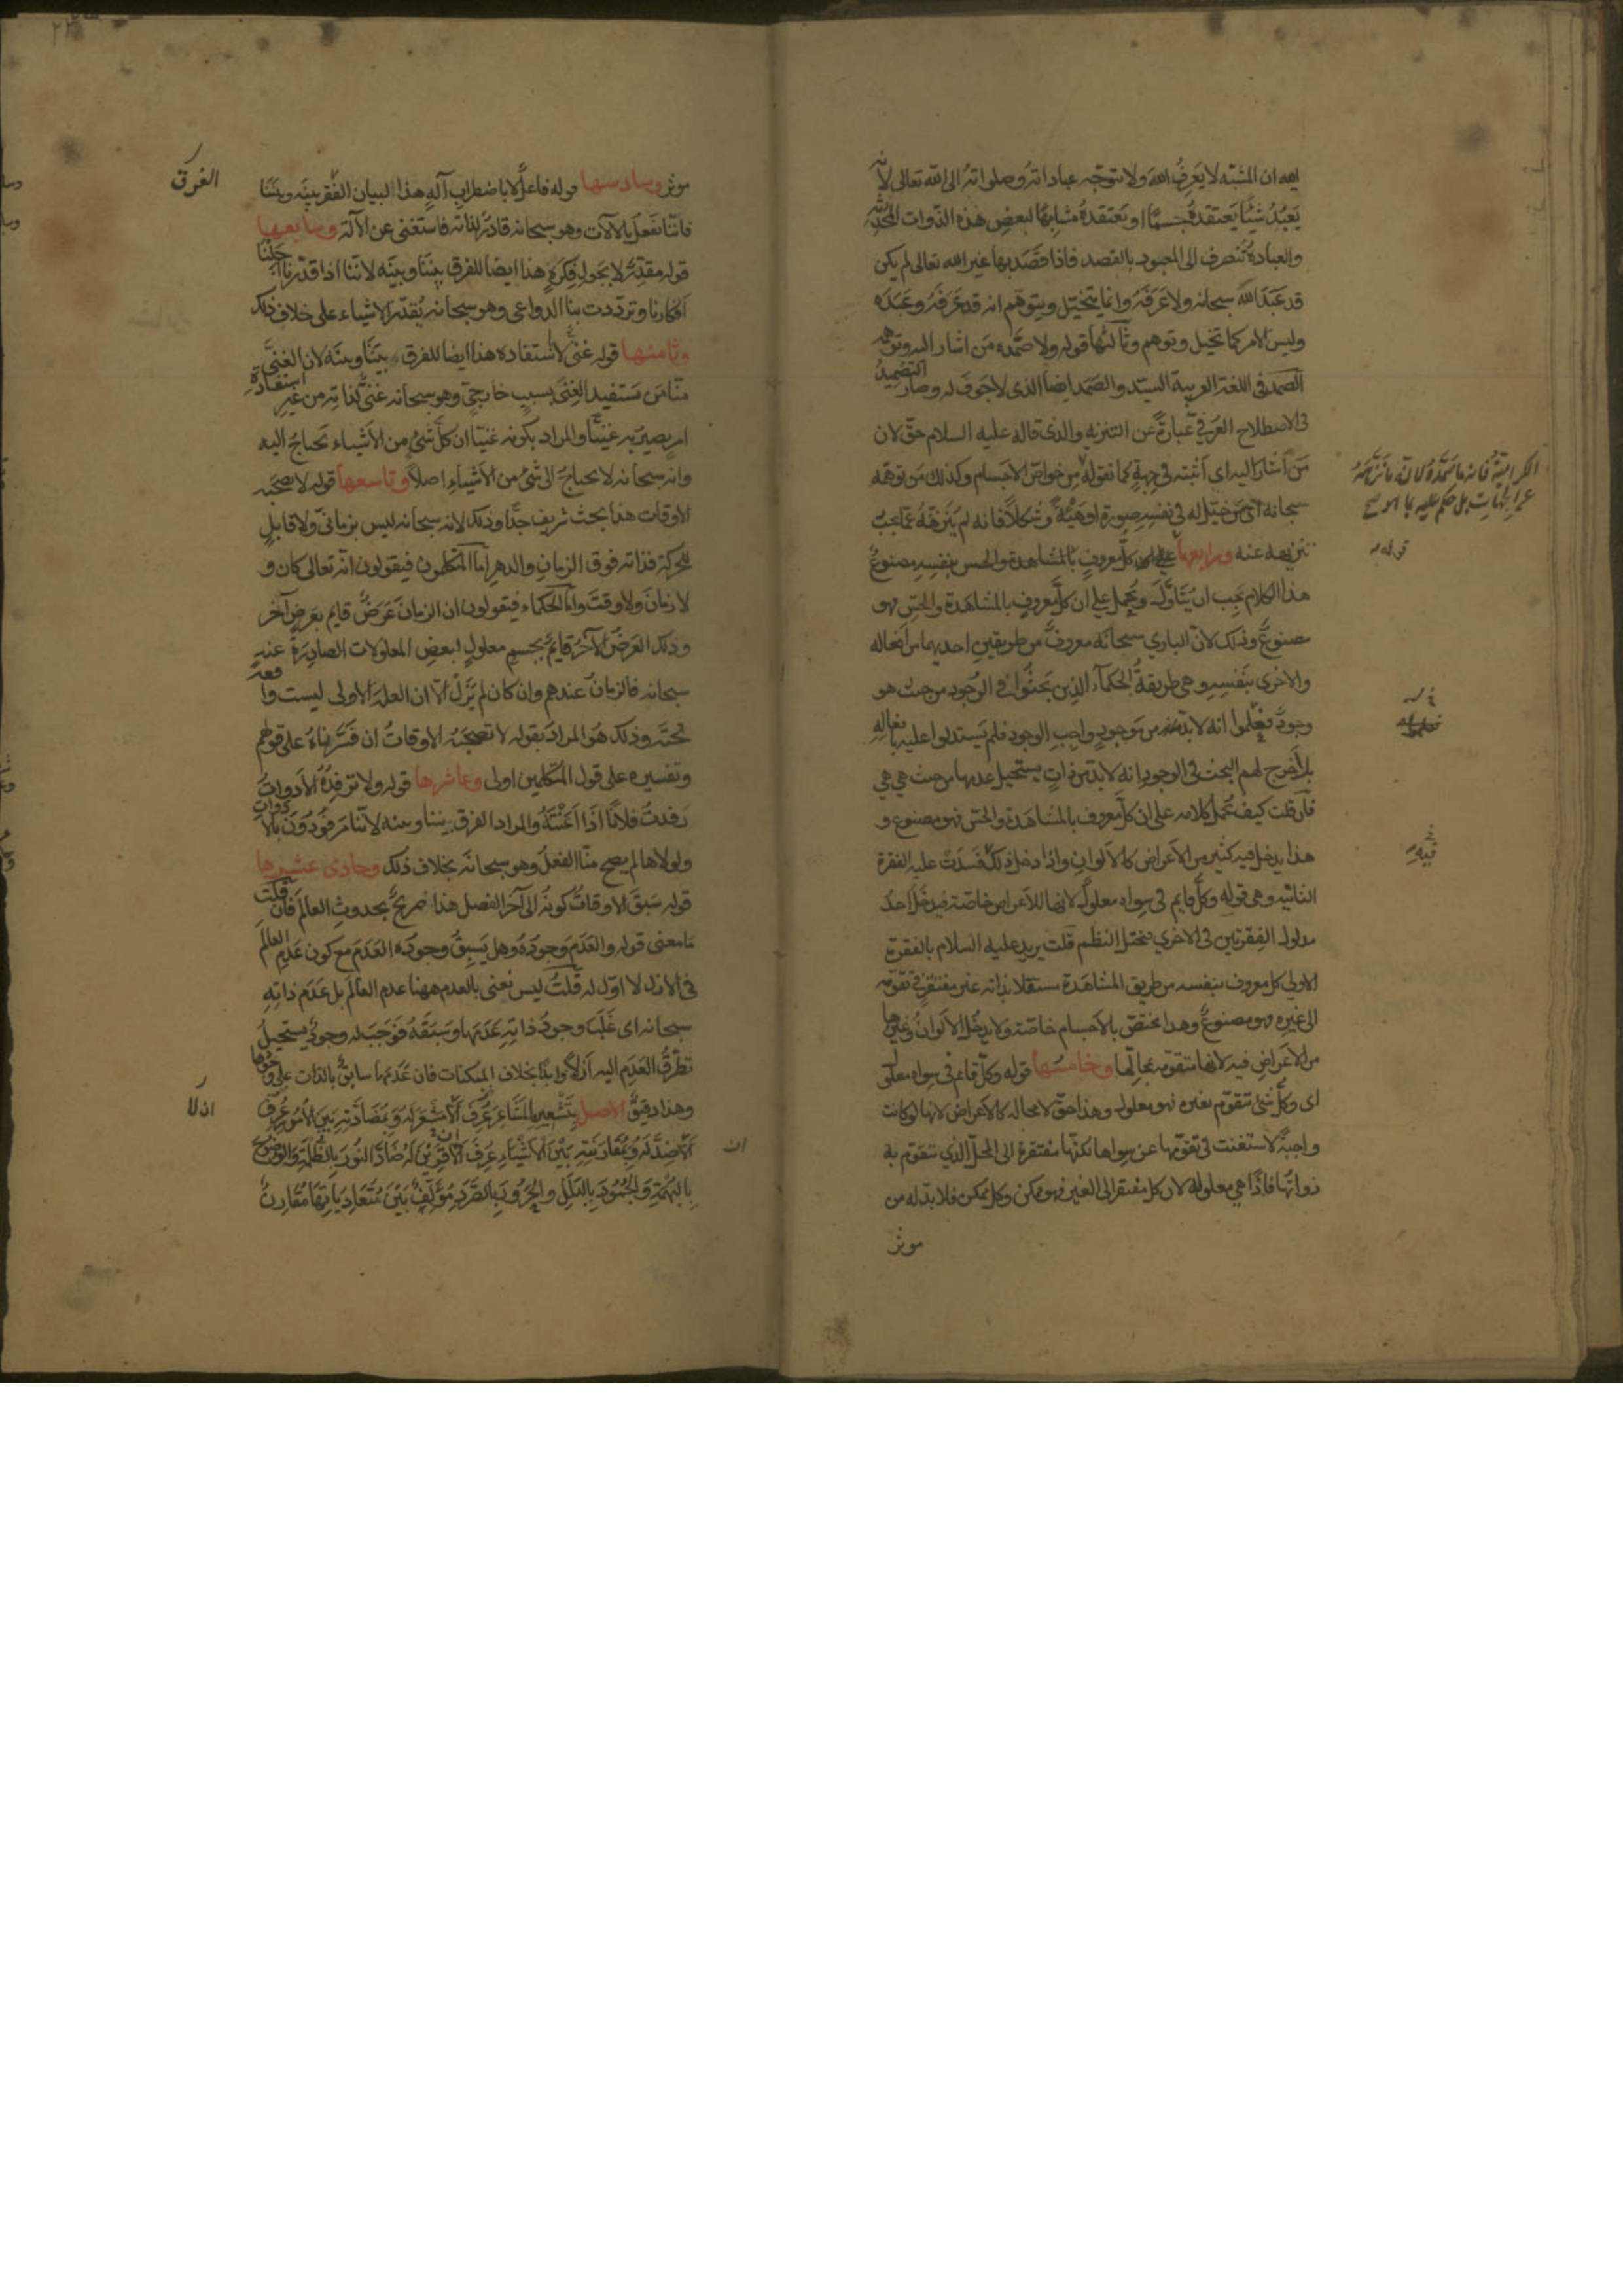 ليه ان المشبّه لا يَعرِفُ اللهَ ولا يتوجّه عباداتهُ وصلواتهُ الى الله تعالى لانه
يَعبُدُ شيئًا يَعتقدهُ جسمًا او يَعتقدهُ مشابِهًا لبعضِ هذه الذّوات المُحدَثة
والعبادةُ تنصرف الى المعبود بالقصد فاذا قصَدَ بها غير الله تعالى لم يكن
قد عَبَدَ اللهَ سبحانه ولا عَرَفَهُ وانما يتخيّل ويتوهّم انه قد عَرَفَهُ وعَبَدَه
وليس الامر كما تخيل وتوهم وثالثها قوله ولا صَمَده مَن اشار اليه وتوهمه
الصمد فى اللغة العربية السيّد والصَمَد ايضًا الذى لا جَوفَ له وصار التَصْميدُ
فى الاصطلاح العُرفيّ عبارةً عن التنزيه والذى قاله عليه السلام حقّ لان
مَن اشار اليه اى اثبته فى جهةٍ كما تقوله
الكراميّةُ فانه ما صَمَدَهُ لانّه ما نزّهَهُ
عن الجهاتِ بل حكم عليه بما هو من
خواصّ الاجسام وكذلك مَن توهّمه
سبحانه اى مَن خيّل له فى نفسِهِ صورةً او هَيْئةً وشكلاً فانه لم يُنَزّههُ عمّا يَجِبُ
تنزيهه عنه ورابعها قوله كلّ معروفٍ بنفسِهِ مصنوعٌ
هذا الكلام يجب ان يُتأوّلَ ويُحمل على ان كلّ معروفٍ بالمشاهَدة والحسّ فهو
مصنوعٌ وذلك لانّ الباري سبحانه معروفٌ من طريقين احديهما من افعاله
والاخرى بنَفسِهِ وهى طريقةُ الحكمآء الذين بَحَثُوا فى الوُجود من حيث هو
وجودٌ فعَلِموا انه لا بدّ من مَوجودٍ واجب الوجود فلم يَستدلوا عليه بافعالِهِ
بل أَخرج لهم البحث فى الوجود انه لا بدّ من ذاتٍ يستحيل عدمها من حيث هي هي
فان قلت كيف تُحمل كلامه على ان كلّ معروف بالمشاهدة والحسّ فهو مصنوع و
هذا يدخل فيه كثير من الاَعراض كالاَلوان واذا دخل ذلك فَسَدَتْ عليه الفقرة
الثانية وهى قوله وكلّ قايم فى سِواه معلولٌ لانها للاَعراض خاصّة فيَدخُلُ احدُ
مدلول الفِقرتين فى الاخرى فيختلّ النظم قلت يريد عليه السلام بالفقرة
الاولى كل معروف بنفسه من طريق المشاهَدة مستقلا بذاته غير مفتقر فى تقوّمه
الى غيره فهو مصنوعٌ وهذا يختصّ بالاَجسام خاصّة ولا يدخُل الاَلوانُ وغيرها
من الاَعراضِ فيه لانها متقوّمه بمحالّها وخامسُها قوله وكلّ قائم فى سواه معلول
اى وكلّ شىءٍ تتقوّم بغيره فهو معلول وهذا حقّ لا محاله كالاَعراض لانها لو كانت
واجبةً لاستغنت فى تقوّمها عن سواها لكنّها مفتقرة الى المحلّ الذي تتقوّم به
ذواتُها فاذًا هي معلوله لان كل مفتقر الى الغير فهو ممكن وكل ممكن فلا بدّ له من
موثر
موثر وسادسها قوله فاعلٌ لا باضطرابِ آلةٍ هذا البيان الفرق بينَه وبينَنا
فاننا نفعلُ بالآلات وهو سبحانه قادرٌ لذاته فاستغنى عن الآلة وسابعها
قوله مقدِّرٌ لا بجَولِ فكرةٍ هذا ايضا للفرق بيننا وبينَه لاننا اذا قدّرنا اَجَلْنا
افكارنا وتردّدت بنا الدواعى وهو سبحانه يُقدّر الاشياء على خلاف ذلك
وثامنها قوله غنىٌّ لا باستفاده هذا ايضا للفرق بَينَنا وبينَه لان الغنىَّ
منّا مَن يَستفيد الغِنى بسببٍ خارجىّ وهو سبحانه غنىٌّ لذاته من غير استفادة
امرٍ يصيرُ به غَنيًّا والمراد بكونه غنيًا ان كلّ شىءٍ من الاَشياء تحتاجُ اليه
وانه سبحانه لا يحتاجُ الى شىءٍ من الاَشياءِ اصلاً وتاسعها قوله لا تصحَبه
الاوقات هذا بحث شريف جدًّا وذلك لانه سبحانه ليس بزمانىّ ولا قابلٍ
للحركة فذاته فوق الزمانِ والدهرِ امّا المتكلمون فيقولون انه تعالى كان و
لا زمانَ ولا وقتَ وامّا الحكماء فيقولون ان الزمانَ عَرَضٌ قايم بعَرضٍ آخر
وذلك العَرضُ الآخرُ قايمٌ بجسمٍ معلولٍ لبعضِ المعلولات الصادِرة عنه
سبحانه فالزمانُ عندهم وان كان لم يَزَلْ الاّ ان العلةَ الاولى ليست واقعة
تحته وذلك هُوَ المراد بقوله لا تصحَبُه الاوقاتُ ان فَسَّرناهُ على قولهم
وتفسيره على قول المتكلّمين اولى وعاشرها قوله ولا تَرفِدُهُ الاَدواتُ
رَفدتُ فلانًا اذا اَعَنْتَهُ والمراد الفرق بيننا وبينه لاننا مَرفُودُونَ بالادوات
ولولاها لم يصح منّا الفعلُ وهو سبحانه بخلاف ذلك وحادى عشرها
قوله سَبَقَ الاوقاتَ كونُه الى آخر الفصل هذا تصريحٌ بحدوثِ العالَم فان قلت
ما معنى قوله والعَدَمَ وجودُه وهل يَسبِقُ وجودُه العَدَمَ مع كون عَدَمِ العالَم
فى الازل لا اوّل له قلتُ ليس نُعنى بالعدم ههنا عدم العالَم بل عَدَم ذاتِهِ
سبحانه اى غَلَبَ وجودُ ذاتِهِ عَدَمَها وسَبَقَهُ فوَجَبَ له وجودٌ يستحيلُ
تطرُّقُ العَدَم اليه ازلاً وابدًا بخلاف الممكنات فان عَدَمَها سابقٌ بالذات على وجودها
وهذا دقيقٌ الاصل بِتَشْعِيرِهِ المَشَاعِرَ عُرِفَ اَنْ لاَ مَشْعَرَ لَهُ وَبِمُضَادَّتِهِ بَيْنَ الاُمُورِ عُرِفَ
اَنْ لاَ ضِدَّ لَهُ وَبِمُقَارَنَتِهِ بَيْنَ الاَشْيَاءِ عُرِفَ اَنْ لاَ قَرِيْنَ لَهُ ضَادَّ النُورَ بِالظُّلْمَةِ وَالوُضُوحَ
بِالبُهْمَةِ وَالجُمُودَ بِالبَلَلِ وَالحَرُورَ بِالصَّرَدِ مُؤَلِّفٌ بَيْنَ مُتَعَادِيَاتِهَا مُقَارِنٌ
الفرق
ان لا
ان